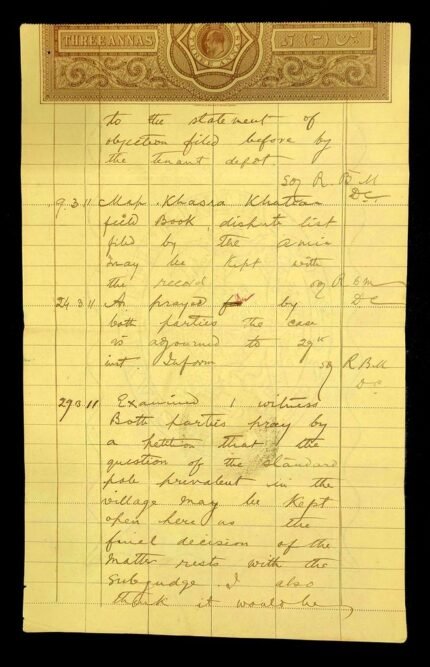 THREE ANNAS
to the statement of
objection filed before by
the tenant depot
Sd/ R. B. M
D.C.
9.3.11 Map, Khasra Khatian
field Book, dispute list
filed by the amin
may be kept with
the record
Sd/ R B M
D C
24.3.11 As prayed by
both parties the case
is adjourned to 29th
inst. Inform
Sd/ R B M
D C
29.3.11 Examined 1 witness
Both parties pray by
a petition that the
question of the standard
pole prevalent in the
village may be kept
open here as the
final decision of the
matter rests with the
Subjudge I also
think it would be